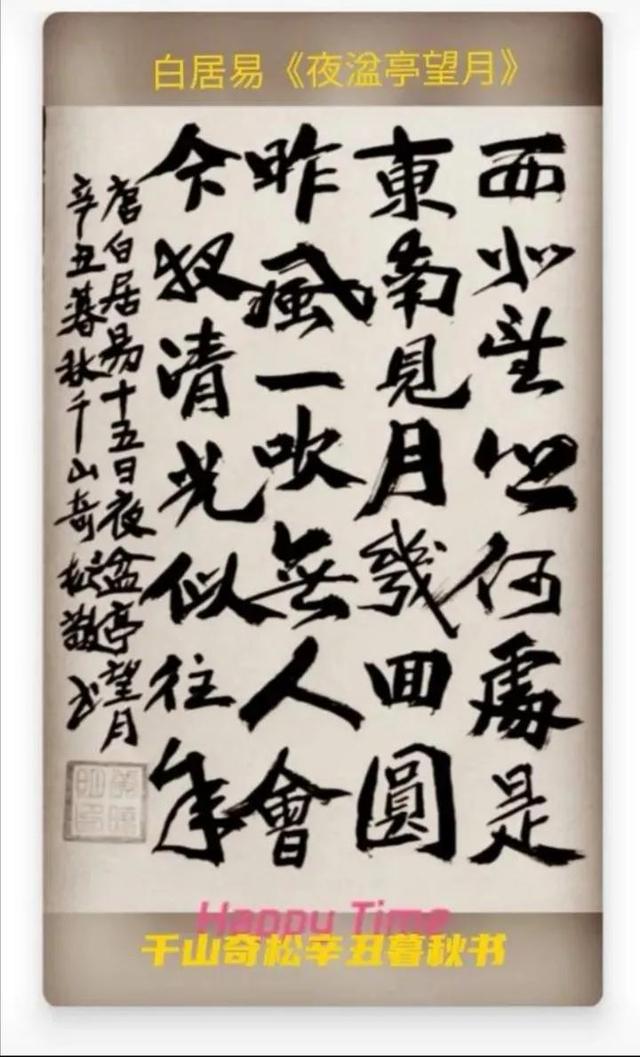 白居易《夜湓亭望月》
西北望鄉何處是
東南見月幾回圓
昨風一吹無人會
今夜清光似往年
唐白居易十五日夜湓亭望月
辛丑暮秋千山奇松敬书
Happy Time
千山奇松辛丑暮秋书